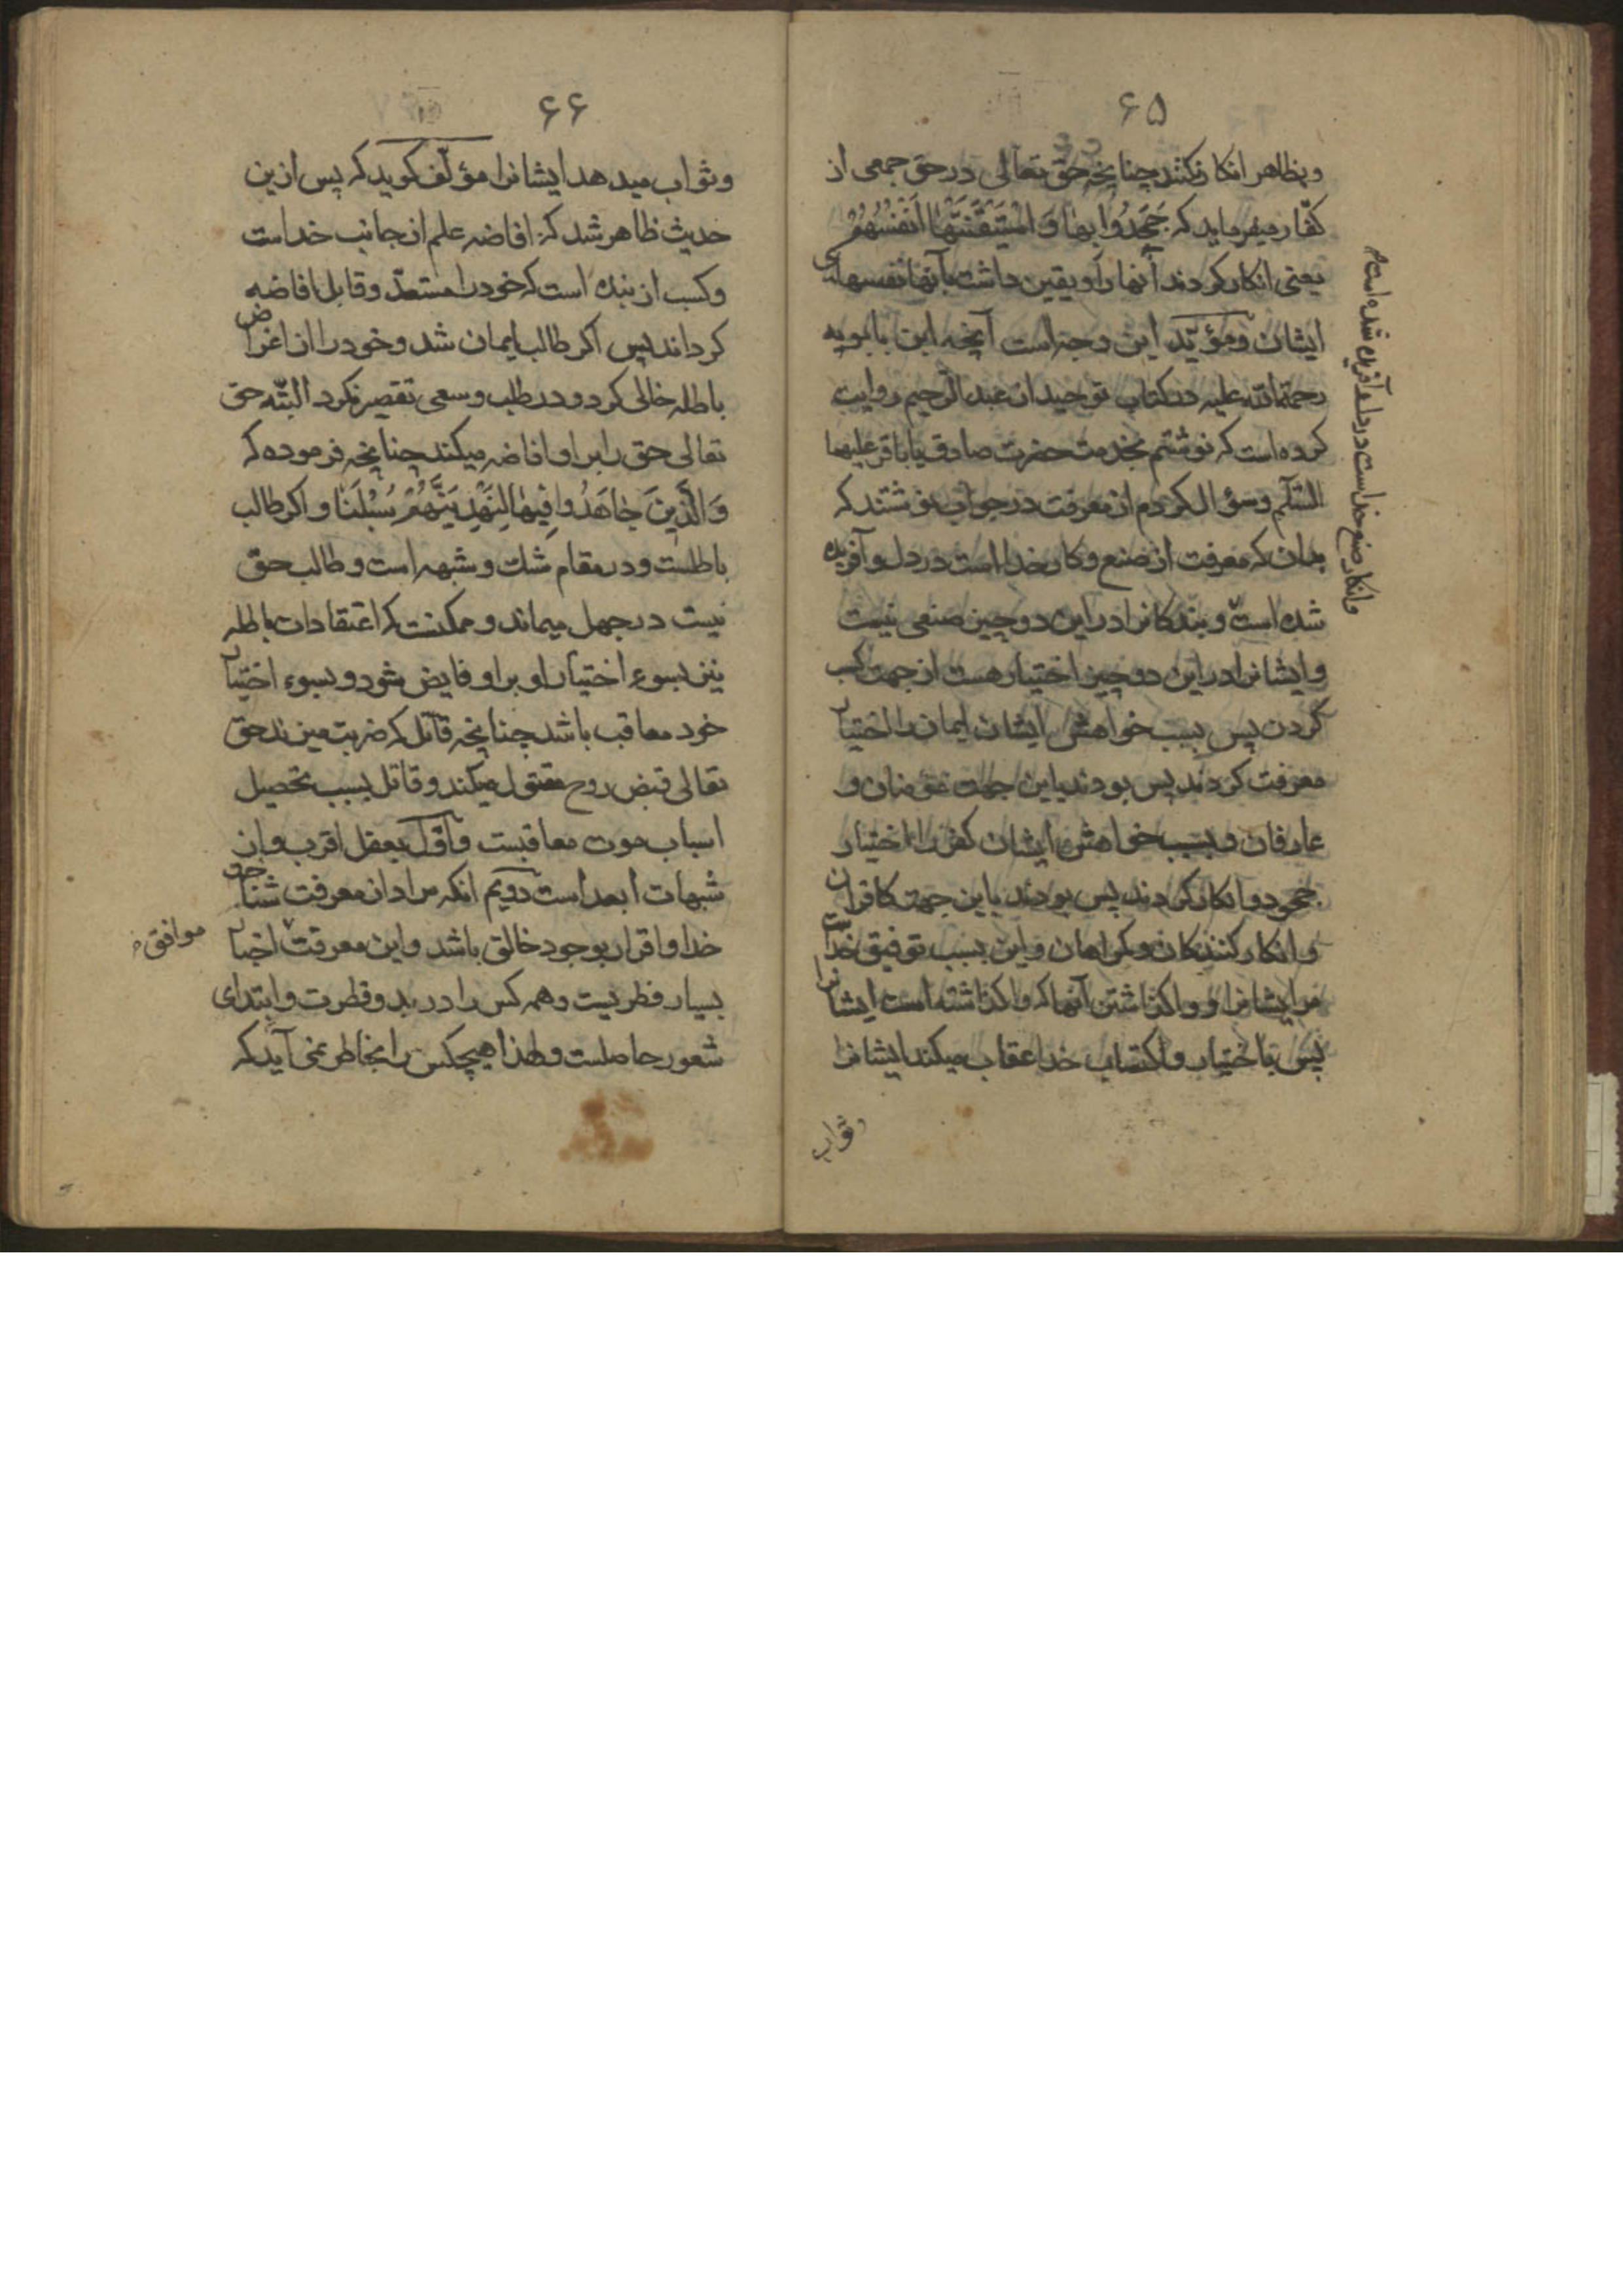 ۶۵
و بظاهر انکار نکنند چنانچه حق تعالی در حق جمعی از
کفّار میفرماید که جَحَدُوا بِها وَ اسْتَیْقَنَتْها اَنْفُسُهُمْ
یعنی انکار کردند آنها را و یقین داشت بآنها نفسهای
ایشان و مؤیّد این وجه است آنچه ابن بابویه
رحمة الله علیه در کتاب توحید از عبد الرّحیم روایت
کرده است که نوشتم بخدمت حضرت صادق یا باقر علیهما
السّلام و سؤال کردم از معرفت در جواب نوشتند که
بدان که معرفت از صنع و کار خدا است در دل و آفریده
شده است و بندکانرا در این دو چیز صنعی نیست
و ایشانرا در این دو چیز اختیار هست از جهت کسب
کردن پس بسبب خواهش ایشان ایمان را اختیار
معرفت کردند پس بودند باین جهت مؤمنان و
عارفان و بسبب خواهش ایشان کفر را اختیار
جحود و انکار کردند پس بودند باین جهت کافران
و انکار کنندکان و کمراهان و این بسبب توفیق خداست
مر ایشانرا و واکذاشتن آنها که واکذاشته است ایشانرا
پس باختیار و اکتساب خدا عقاب میکند ایشانرا
و ثواب
و انکار صنع خداست در دل و آفریده شده است
۶۶
و ثواب میدهد ایشانرا مؤلّف کوید که پس ازین
حدیث ظاهر شد که افاضه علم از جانب خداست
و کسب از بنده است که خود را مستعدّ و قابل افاضه
کرداند پس اکر طالب ایمان شد و خود را از اغراض
باطله خالی کرد و در طلب و سعی تقصیر نکرد البتّه حق
تعالی حق را بر او افاضه میکند چنانچه فرموده که
وَالَّذینَ جاهَدُوا فِیها لَنَهْدِیَنَّهُمْ سُبُلَنا و اکر طالب
باطلست و در مقام شك و شبهه است و طالب حق
نیست در جهل میماند و ممکنست که اعتقادات باطله
نیز بسوء اختیار او بر او فایض شود و بسوء اختیار
خود معاقب باشد چنانچه قاتل که ضربت میزند حق
تعالی قبض روح مقتول میکند و قاتل بسبب تحصیل
اسباب موت معاقبست و اوّل بعقل اقرب و از
شبهات ابعد است دویّم انکه مراد از معرفت شناختن
خدا و اقرار بوجود خالق باشد و این معرفت اخبار
موافق
بسیار فطریست و همه کس را در بدو فطرت و ابتدای
شعور حاصلست و لهذا هیچکس را بخاطر نمی آید که